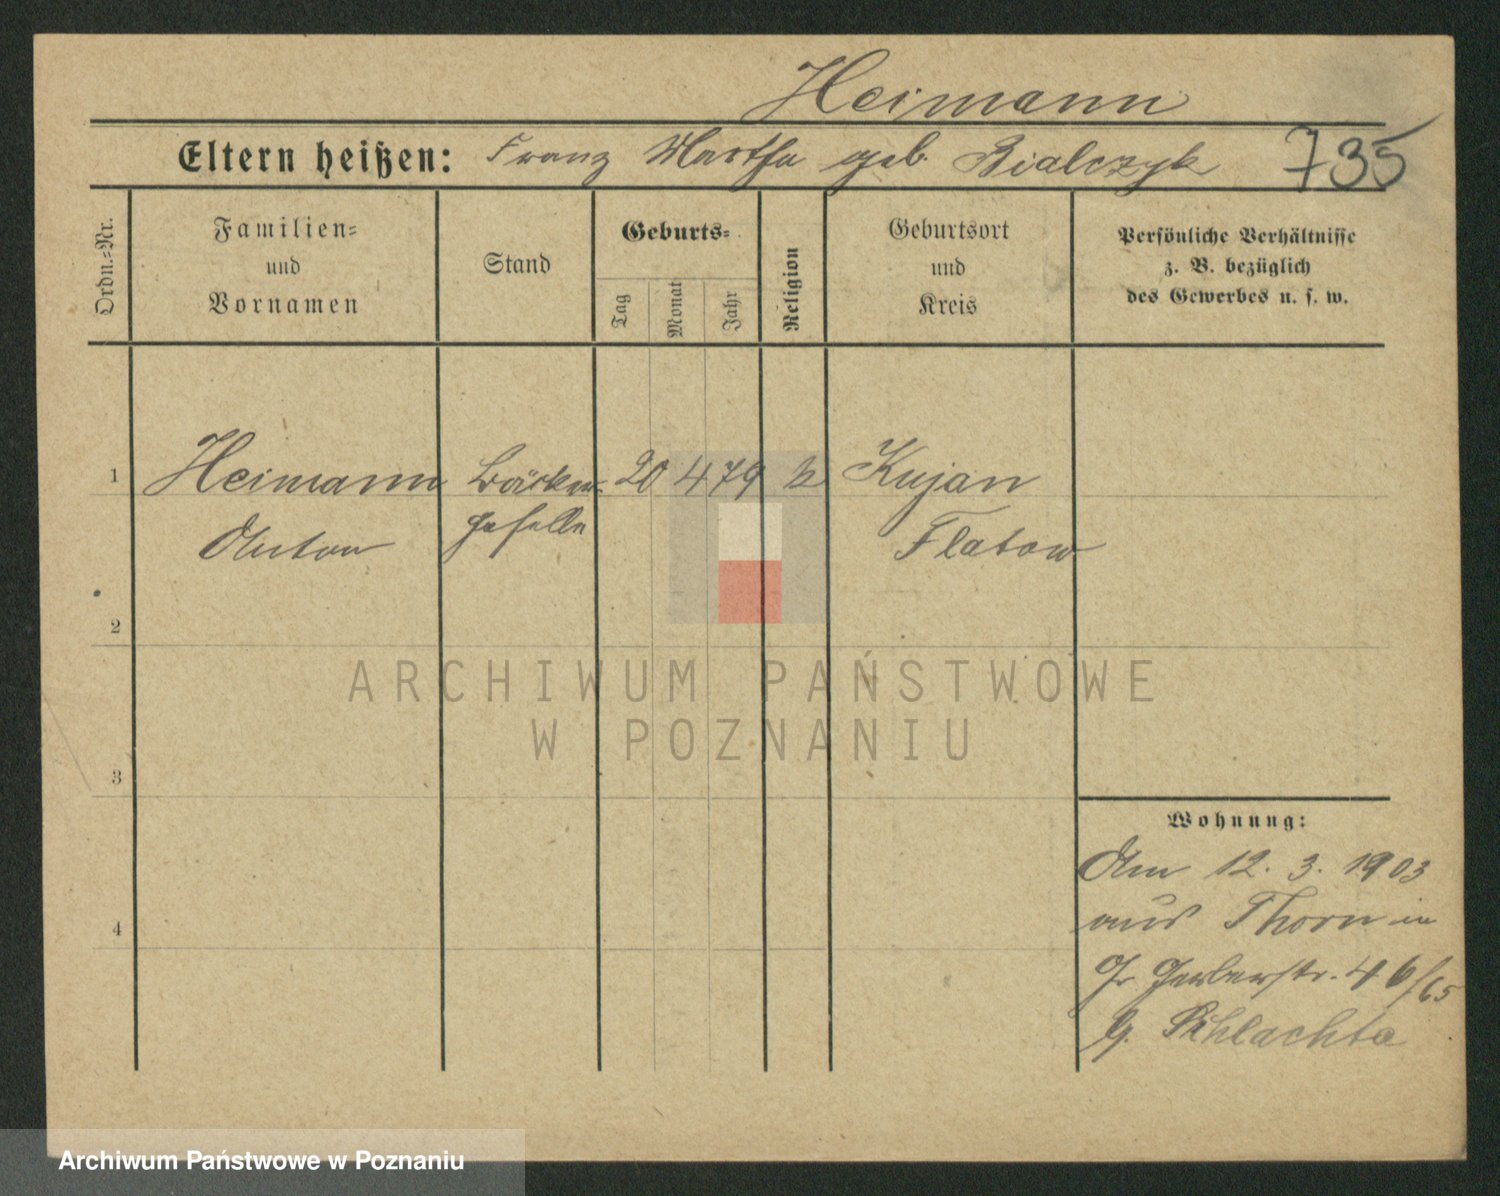 Heimann
Eltern heißen: Franz Martha geb. Bialczyk 735
Ordn.=Nr.
Familien=
und
Vornamen
Stand
Geburts=
Tag
Monat
Jahr
Religion
Geburtsort
und
Kreis
Persönliche Verhältnisse
z. B. bezüglich
des Gewerbes u. s. w.
1 Heimann Bäcker= 20 4 79 k Kujan
Anton geselle Flatow
2
ARCHIWUM PAŃSTWOWE
W POZNANIU
3
Wohnung:
Am 12. 3. 1903
aus Thorn in
4
Gr. Gerberstr. 46/65
b. Schlachta
Archiwum Państwowe w Poznaniu